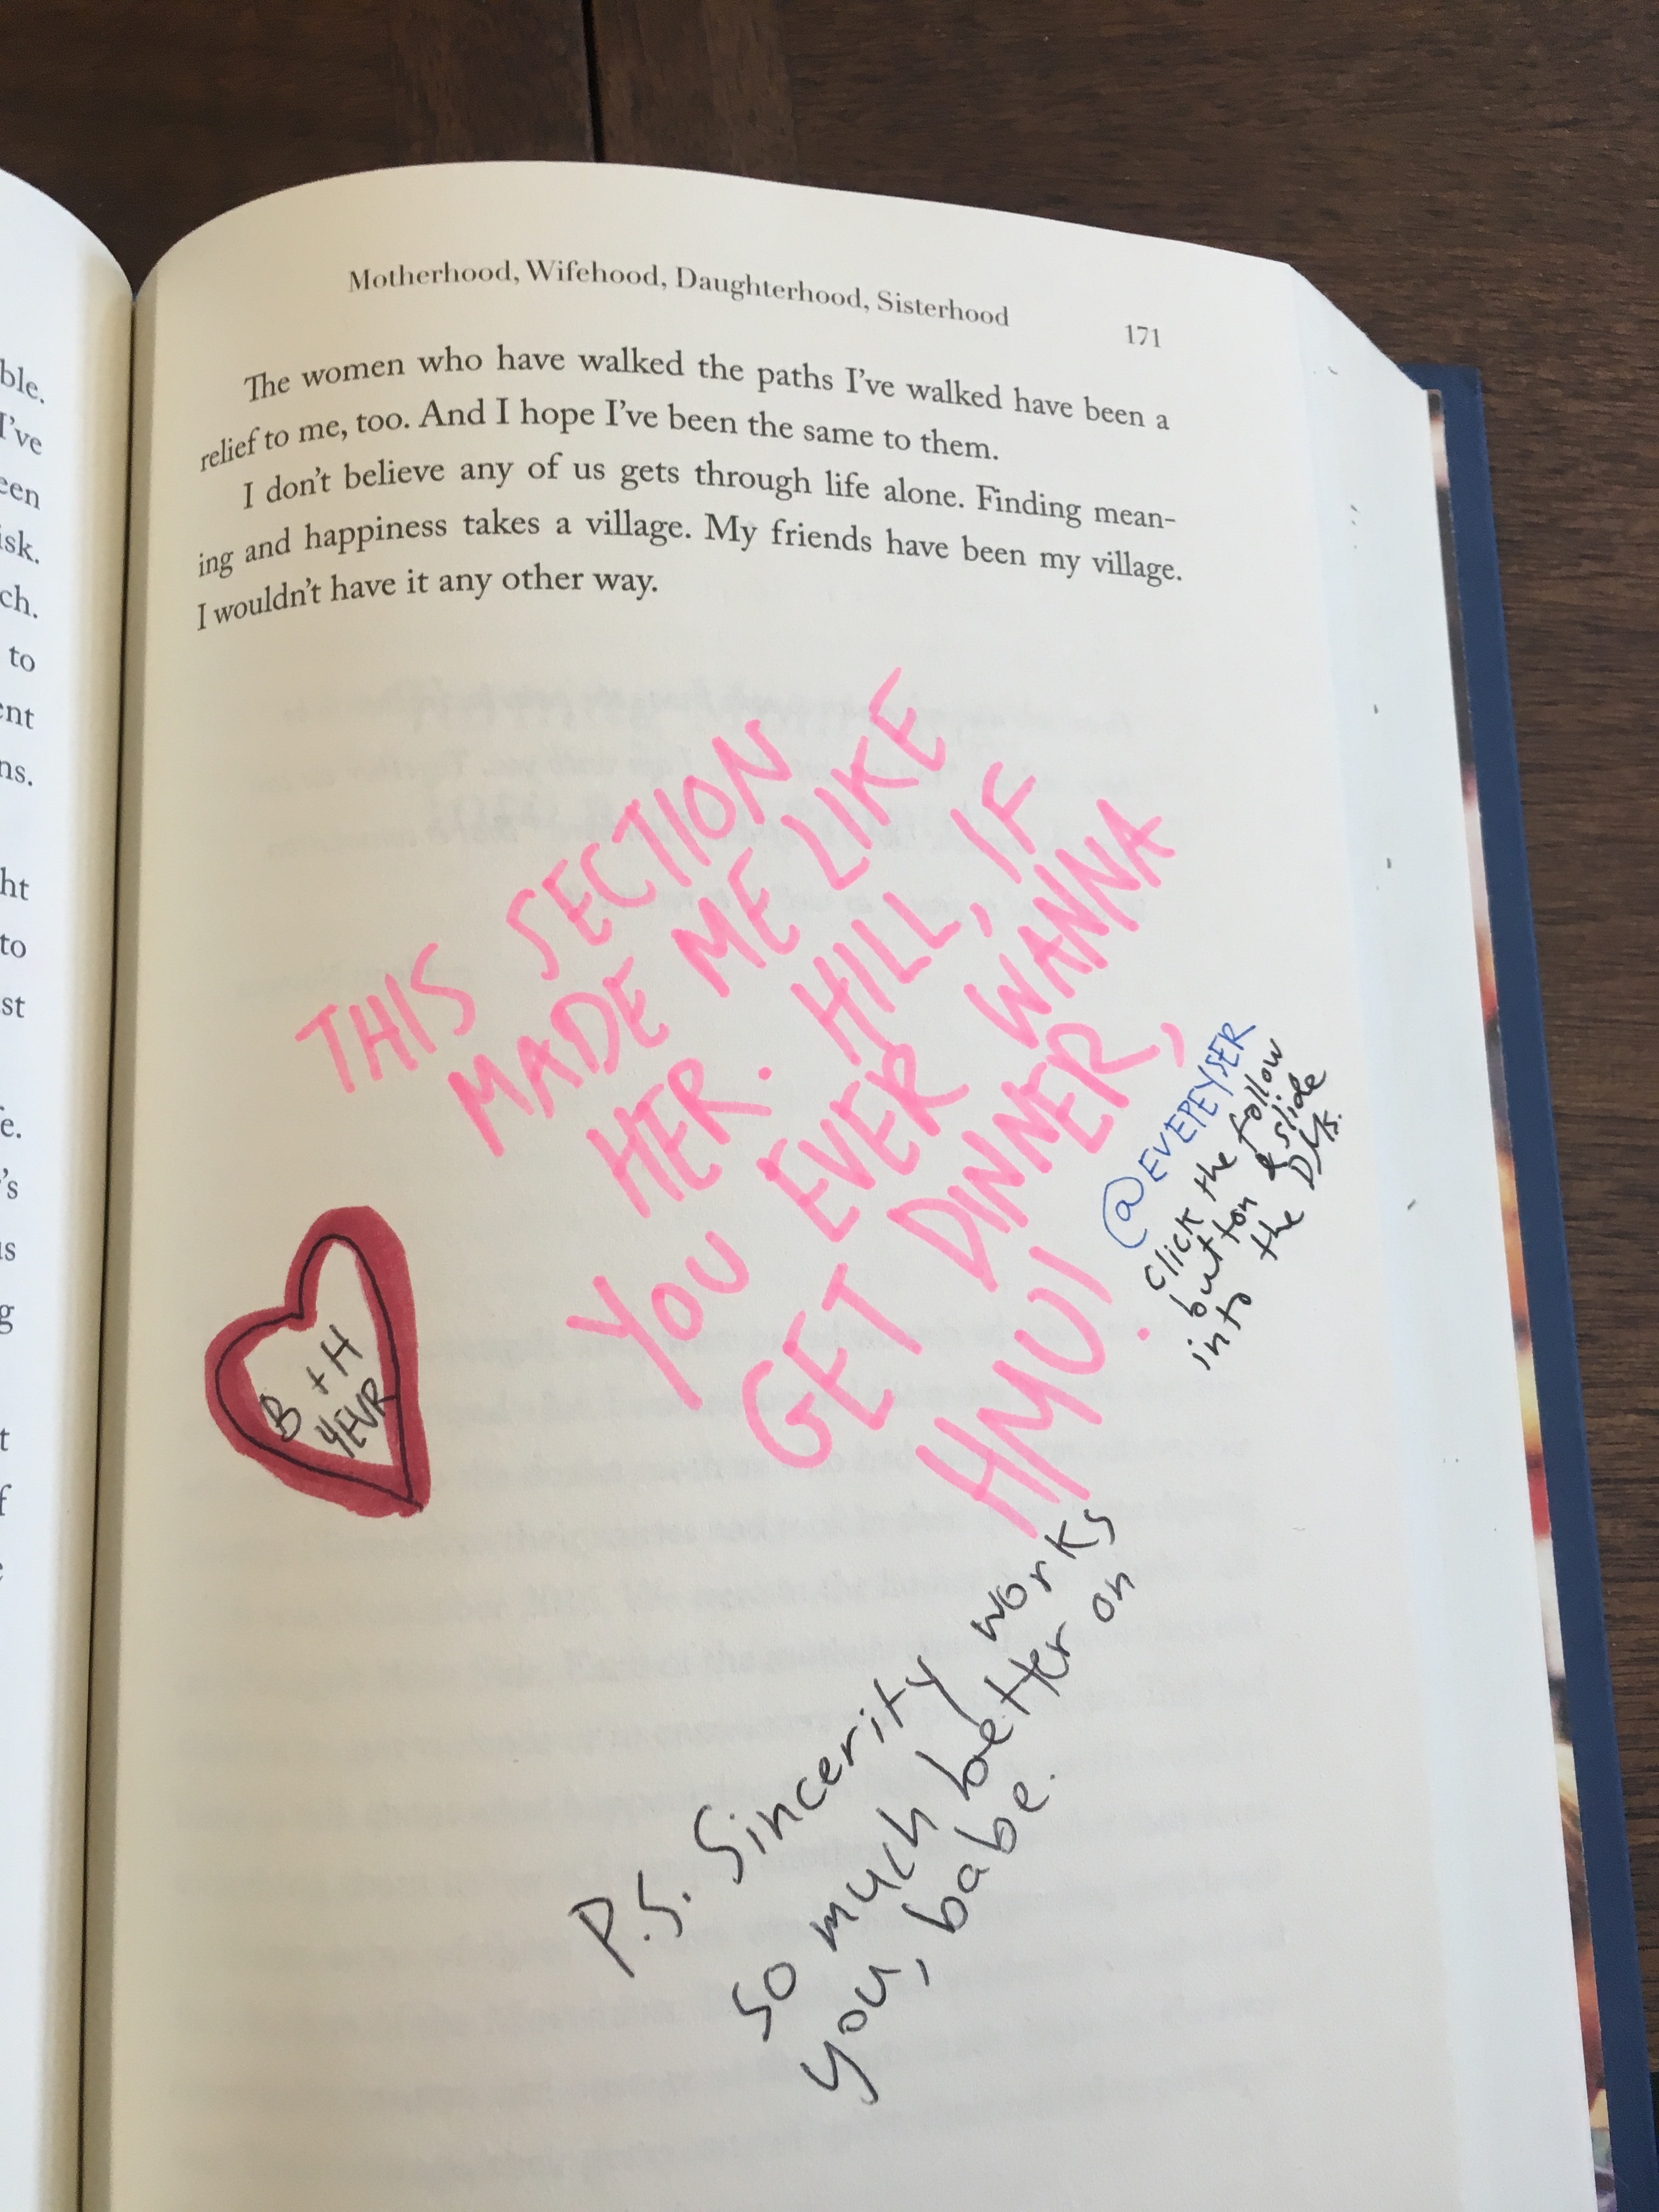 Motherhood, Wifehood, Daughterhood, Sisterhood 171
The women who have walked the paths I've walked have been a
relief to me, too. And I hope I've been the same to them.
I don't believe any of us gets through life alone. Finding mean-
ing and happiness takes a village. My friends have been my village.
I wouldn't have it any other way.
THIS SECTION
MADE ME LIKE
HER. HILL, IF
YOU EVER WANNA
GET DINNER,
HMU!
@EVEPEYSER
click the follow
button & slide
into the DMs.
B + H
4EVR
P.S. Sincerity works
so much better on
you, babe.
ble.
I've
een
isk.
ch.
to
ent
ns.
ht
to
st
e.
's
us
g
t
f